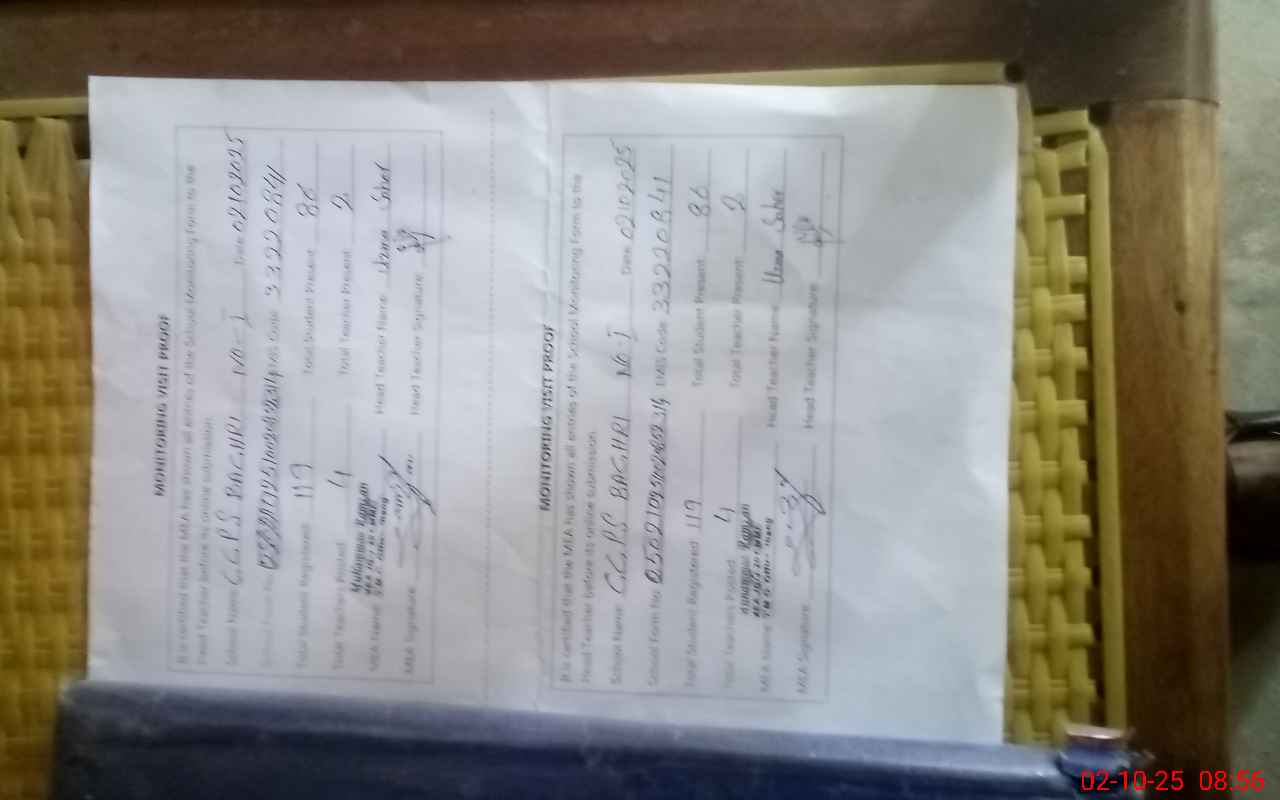 MONITORING VISIT PROOF
It is certified that the MEA has shown all entries of the School Monitoring Form to the
Head Teacher before its online submission.
School Name G.G.P.S BAGHRI No-I Date 02102025
School Form No EMIS Code 33220841
Total Student Registered 119 Total Student Present 86
Total Teachers Posted 4 Total Teacher Present 2
MEA Name Muhammad Head Teacher Name Uzma Saher
MEA Signature Head Teacher Signature
MONITORING VISIT PROOF
It is certified that the MEA has shown all entries of the School Monitoring Form to the
Head Teacher before its online submission.
School Name G.G.P.S BAGHRI No-I Date 02102025
School Form No EMIS Code 33220841
Total Student Registered 119 Total Student Present 86
Total Teachers Posted 4 Total Teacher Present 2
MEA Name Muhammad Head Teacher Name Uzma Saher
MEA Signature Head Teacher Signature
02-10-25 08:56